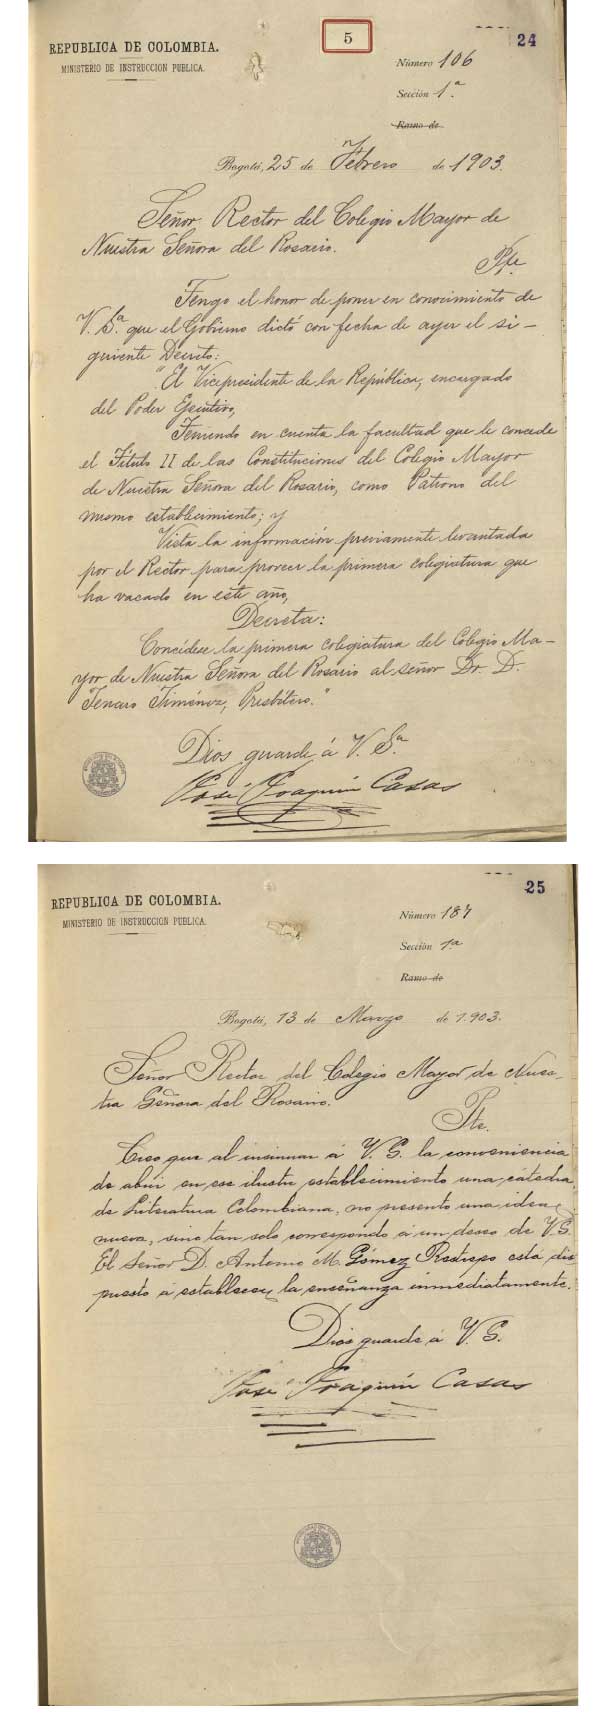 5
24
REPUBLICA DE COLOMBIA.
MINISTERIO DE INSTRUCCION PUBLICA.
Número 106
Sección 1ª
Ramo de
Bogotá, 25 de Febrero de 1903.
Señor Rector del Colegio Mayor de
Nuestra Señora del Rosario.
Pte.
Tengo el honor de poner en conocimiento de
V. Sª que el Gobierno dictó con fecha de ayer el si-
guiente Decreto:
"El Vicepresidente de la República, encargado
del Poder Ejecutivo,
Teniendo en cuenta la facultad que le concede
el Título II de las Constituciones del Colegio Mayor
de Nuestra Señora del Rosario, como Patrono del
mismo establecimiento; y
Vista la información previamente levantada
por el Rector para proveer la primera colegiatura que
ha vacado en este año,
Decreta:
Concédese la primera colegiatura del Colegio Ma-
yor de Nuestra Señora del Rosario al señor Dr. D.
Jenaro Jiménez, Presbítero."
Dios guarde á V. Sª
José Joaquín Casas
25
REPUBLICA DE COLOMBIA.
MINISTERIO DE INSTRUCCION PUBLICA.
Número 187
Sección 1ª
Ramo de
Bogotá, 13 de Marzo de 1.903.
Señor Rector del Colegio Mayor de Nues-
tra Señora del Rosario.
Pte.
Creo que al insinuar á V. S. la conveniencia
de abrir en ese ilustre establecimiento una cátedra
de Literatura Colombiana, no presento una idea
nueva, sino tan solo correspondo á un deseo de V. S.
El Señor D. Antonio M. Gómez Restrepo está dis
puesto á establecer la enseñanza inmediatamente.
Dios guarde á V. S.
José Joaquín Casas